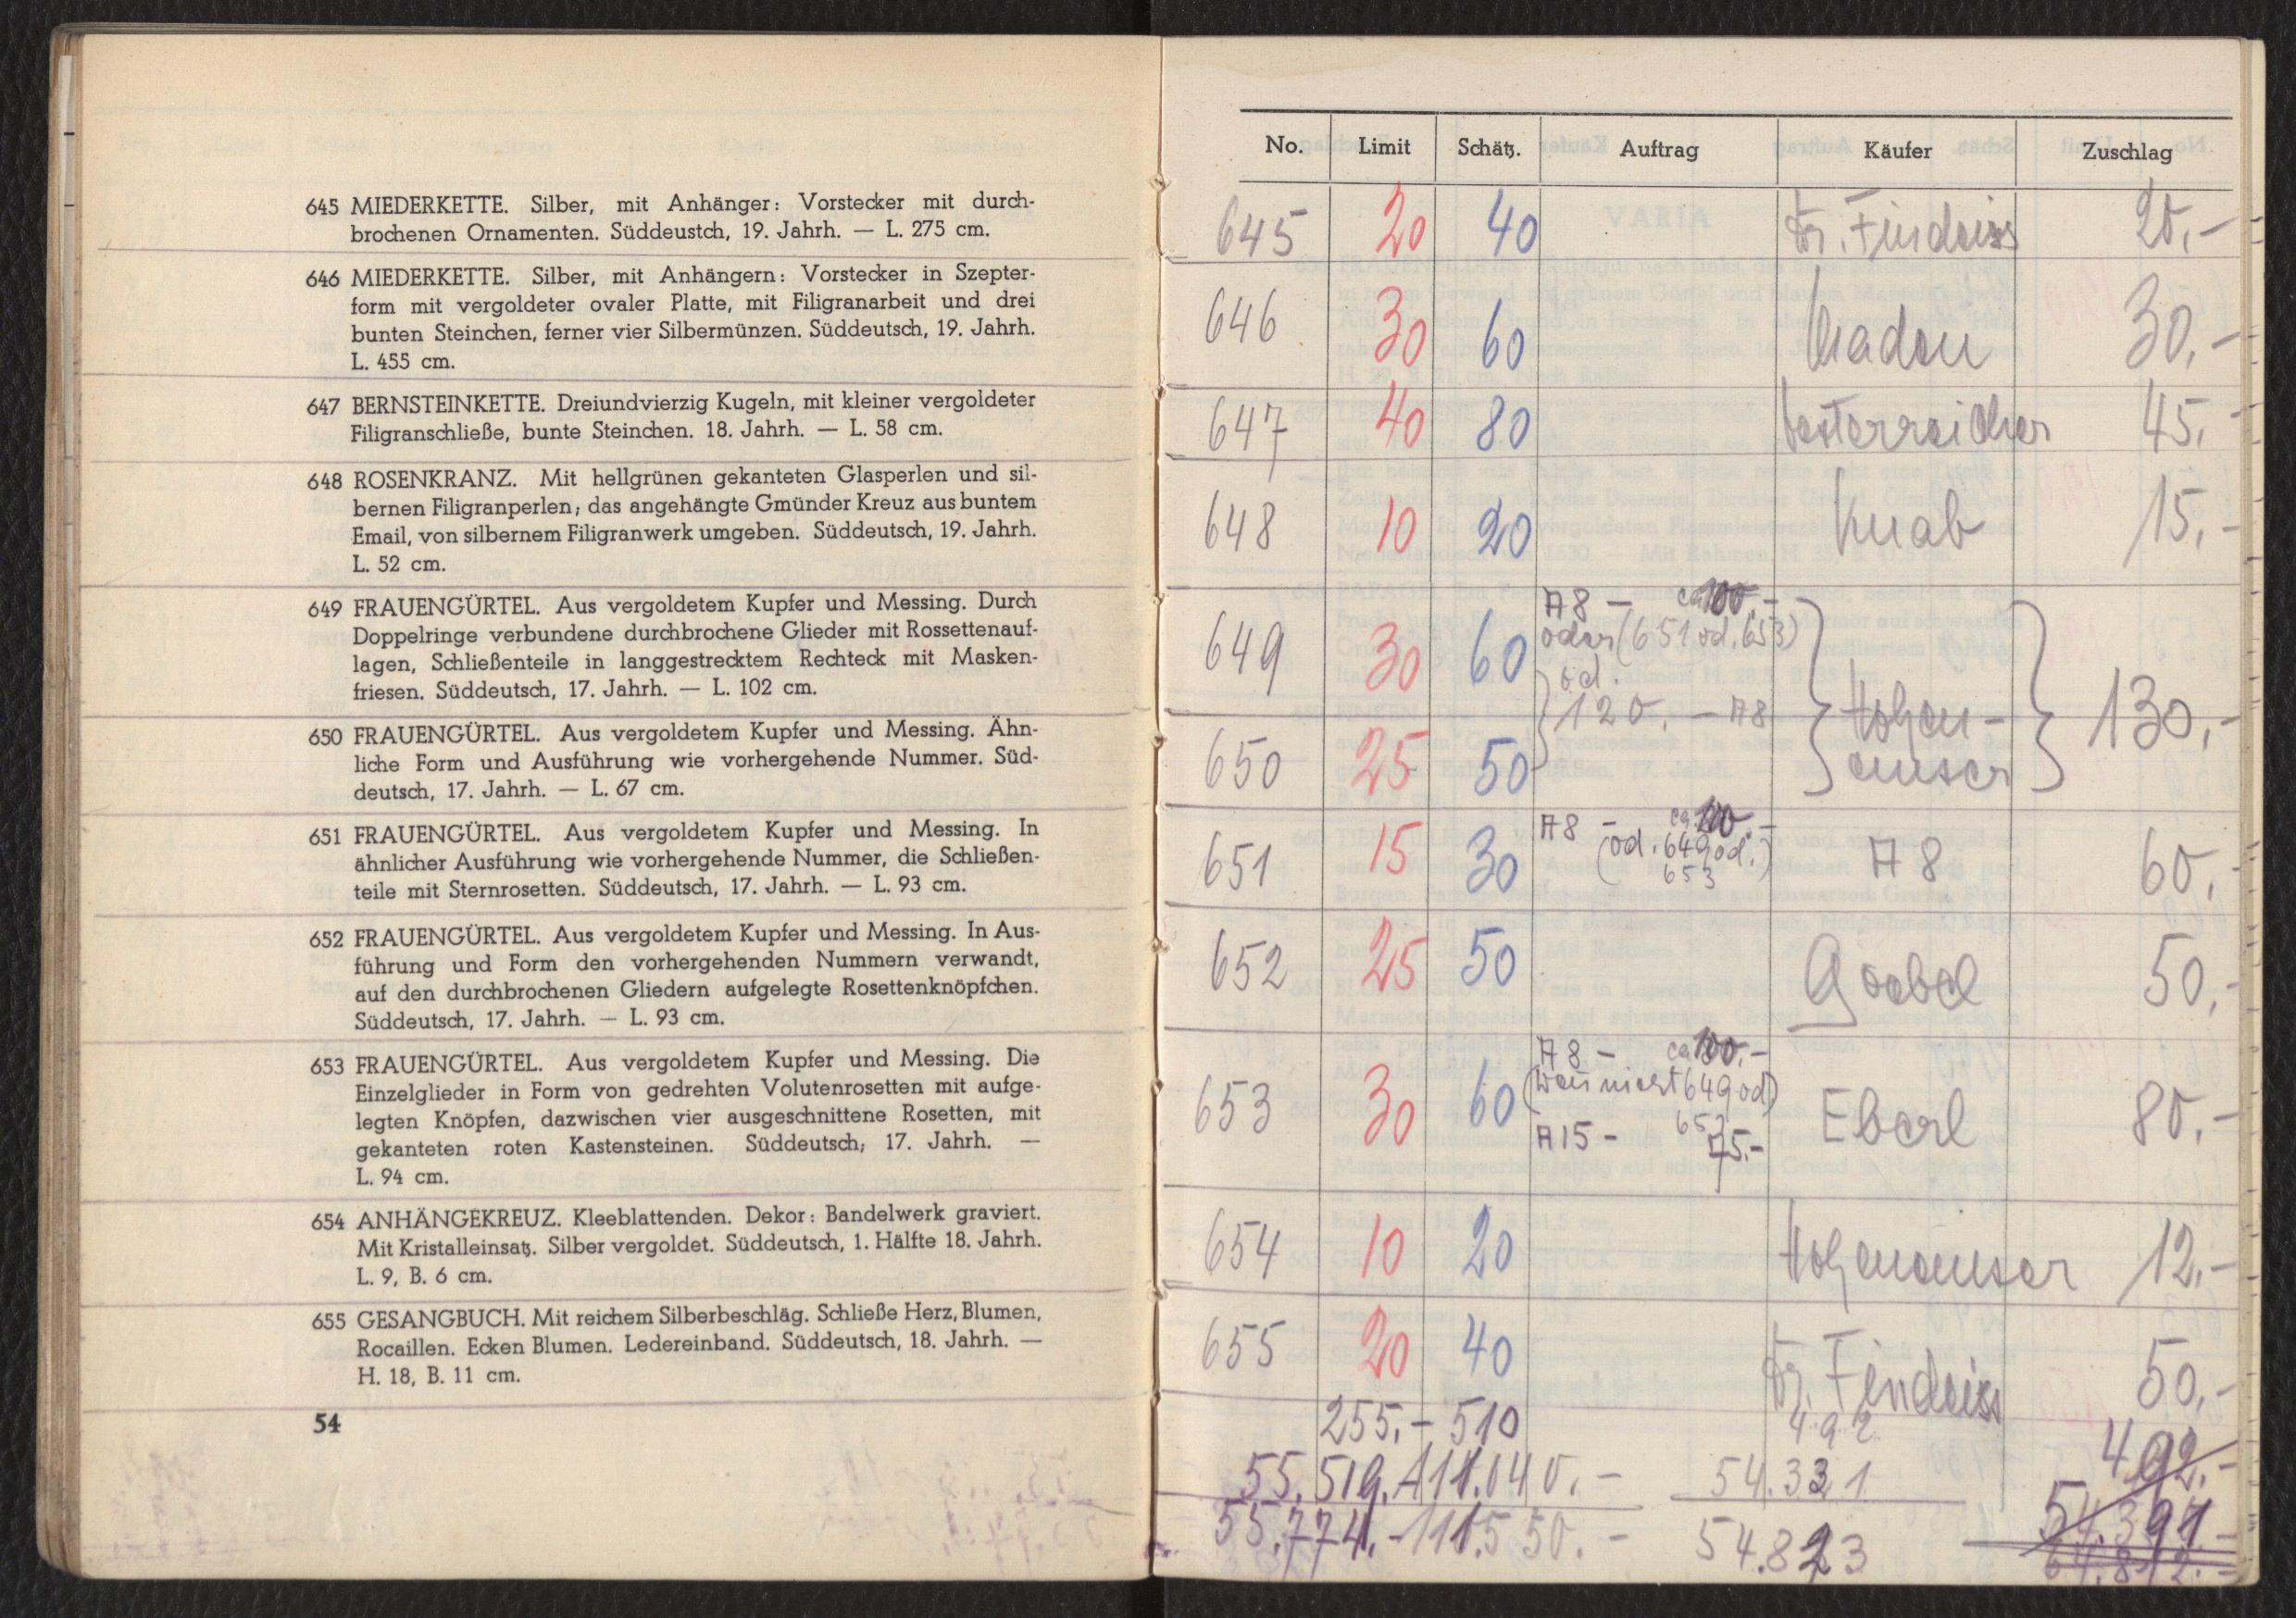 645 MIEDERKETTE. Silber, mit Anhänger: Vorstecker mit durch-
brochenen Ornamenten. Süddeustch, 19. Jahrh. — L. 275 cm.
646 MIEDERKETTE. Silber, mit Anhängern: Vorstecker in Szepter-
form mit vergoldeter ovaler Platte, mit Filigranarbeit und drei
bunten Steinchen, ferner vier Silbermünzen. Süddeutsch, 19. Jahrh.
L. 455 cm.
647 BERNSTEINKETTE. Dreiundvierzig Kugeln, mit kleiner vergoldeter
Filigranschließe, bunte Steinchen. 18. Jahrh. — L. 58 cm.
648 ROSENKRANZ. Mit hellgrünen gekanteten Glasperlen und sil-
bernen Filigranperlen; das angehängte Gmünder Kreuz aus buntem
Email, von silbernem Filigranwerk umgeben. Süddeutsch, 19. Jahrh.
L. 52 cm.
649 FRAUENGÜRTEL. Aus vergoldetem Kupfer und Messing. Durch
Doppelringe verbundene durchbrochene Glieder mit Rossettenauf-
lagen, Schließenteile in langgestrecktem Rechteck mit Masken-
friesen. Süddeutsch, 17. Jahrh. — L. 102 cm.
650 FRAUENGÜRTEL. Aus vergoldetem Kupfer und Messing. Ähn-
liche Form und Ausführung wie vorhergehende Nummer. Süd-
deutsch, 17. Jahrh. — L. 67 cm.
651 FRAUENGÜRTEL. Aus vergoldetem Kupfer und Messing. In
ähnlicher Ausführung wie vorhergehende Nummer, die Schließen-
teile mit Sternrosetten. Süddeutsch, 17. Jahrh. — L. 93 cm.
652 FRAUENGÜRTEL. Aus vergoldetem Kupfer und Messing. In Aus-
führung und Form den vorhergehenden Nummern verwandt,
auf den durchbrochenen Gliedern aufgelegte Rosettenknöpfchen.
Süddeutsch, 17. Jahrh. — L. 93 cm.
653 FRAUENGÜRTEL. Aus vergoldetem Kupfer und Messing. Die
Einzelglieder in Form von gedrehten Volutenrosetten mit aufge-
legten Knöpfen, dazwischen vier ausgeschnittene Rosetten, mit
gekanteten roten Kastensteinen. Süddeutsch; 17. Jahrh. —
L. 94 cm.
654 ANHÄNGEKREUZ. Kleeblattenden. Dekor: Bandelwerk graviert.
Mit Kristalleinsatz. Silber vergoldet. Süddeutsch, 1. Hälfte 18. Jahrh.
L. 9, B. 6 cm.
655 GESANGBUCH. Mit reichem Silberbeschläg. Schließe Herz, Blumen,
Rocaillen. Ecken Blumen. Ledereinband. Süddeutsch, 18. Jahrh. —
H. 18, B. 11 cm.
54
No. Limit Schätz. Auftrag Käufer Zuschlag
645 20 40 Dr. Findeiss 20,-
646 30 60 30,-
647 40 80 Oesterreicher 45,-
648 10 20 Knab 15,-
A8 - ca 100.-
649 30 60 oder (651 od. 653)
od.
120.- A8 Hohen- 130,-
650 25 50 auser
A8 - ca
651 15 30 (od. 649 od. A8 60,-
653)
652 25 50 Goebel 50,-
A8 - ca 100.-
(wen nicht 649 od
653 30 60 Eberl 80,-
A15 - 75.-
654 10 20 Hohenauser 12,-
655 20 40 Dr. Findeiss 50,-
255,- 510 492 492.-
55.519.- 111.040.- 54.331
55.774.- 111.550.- 54.823